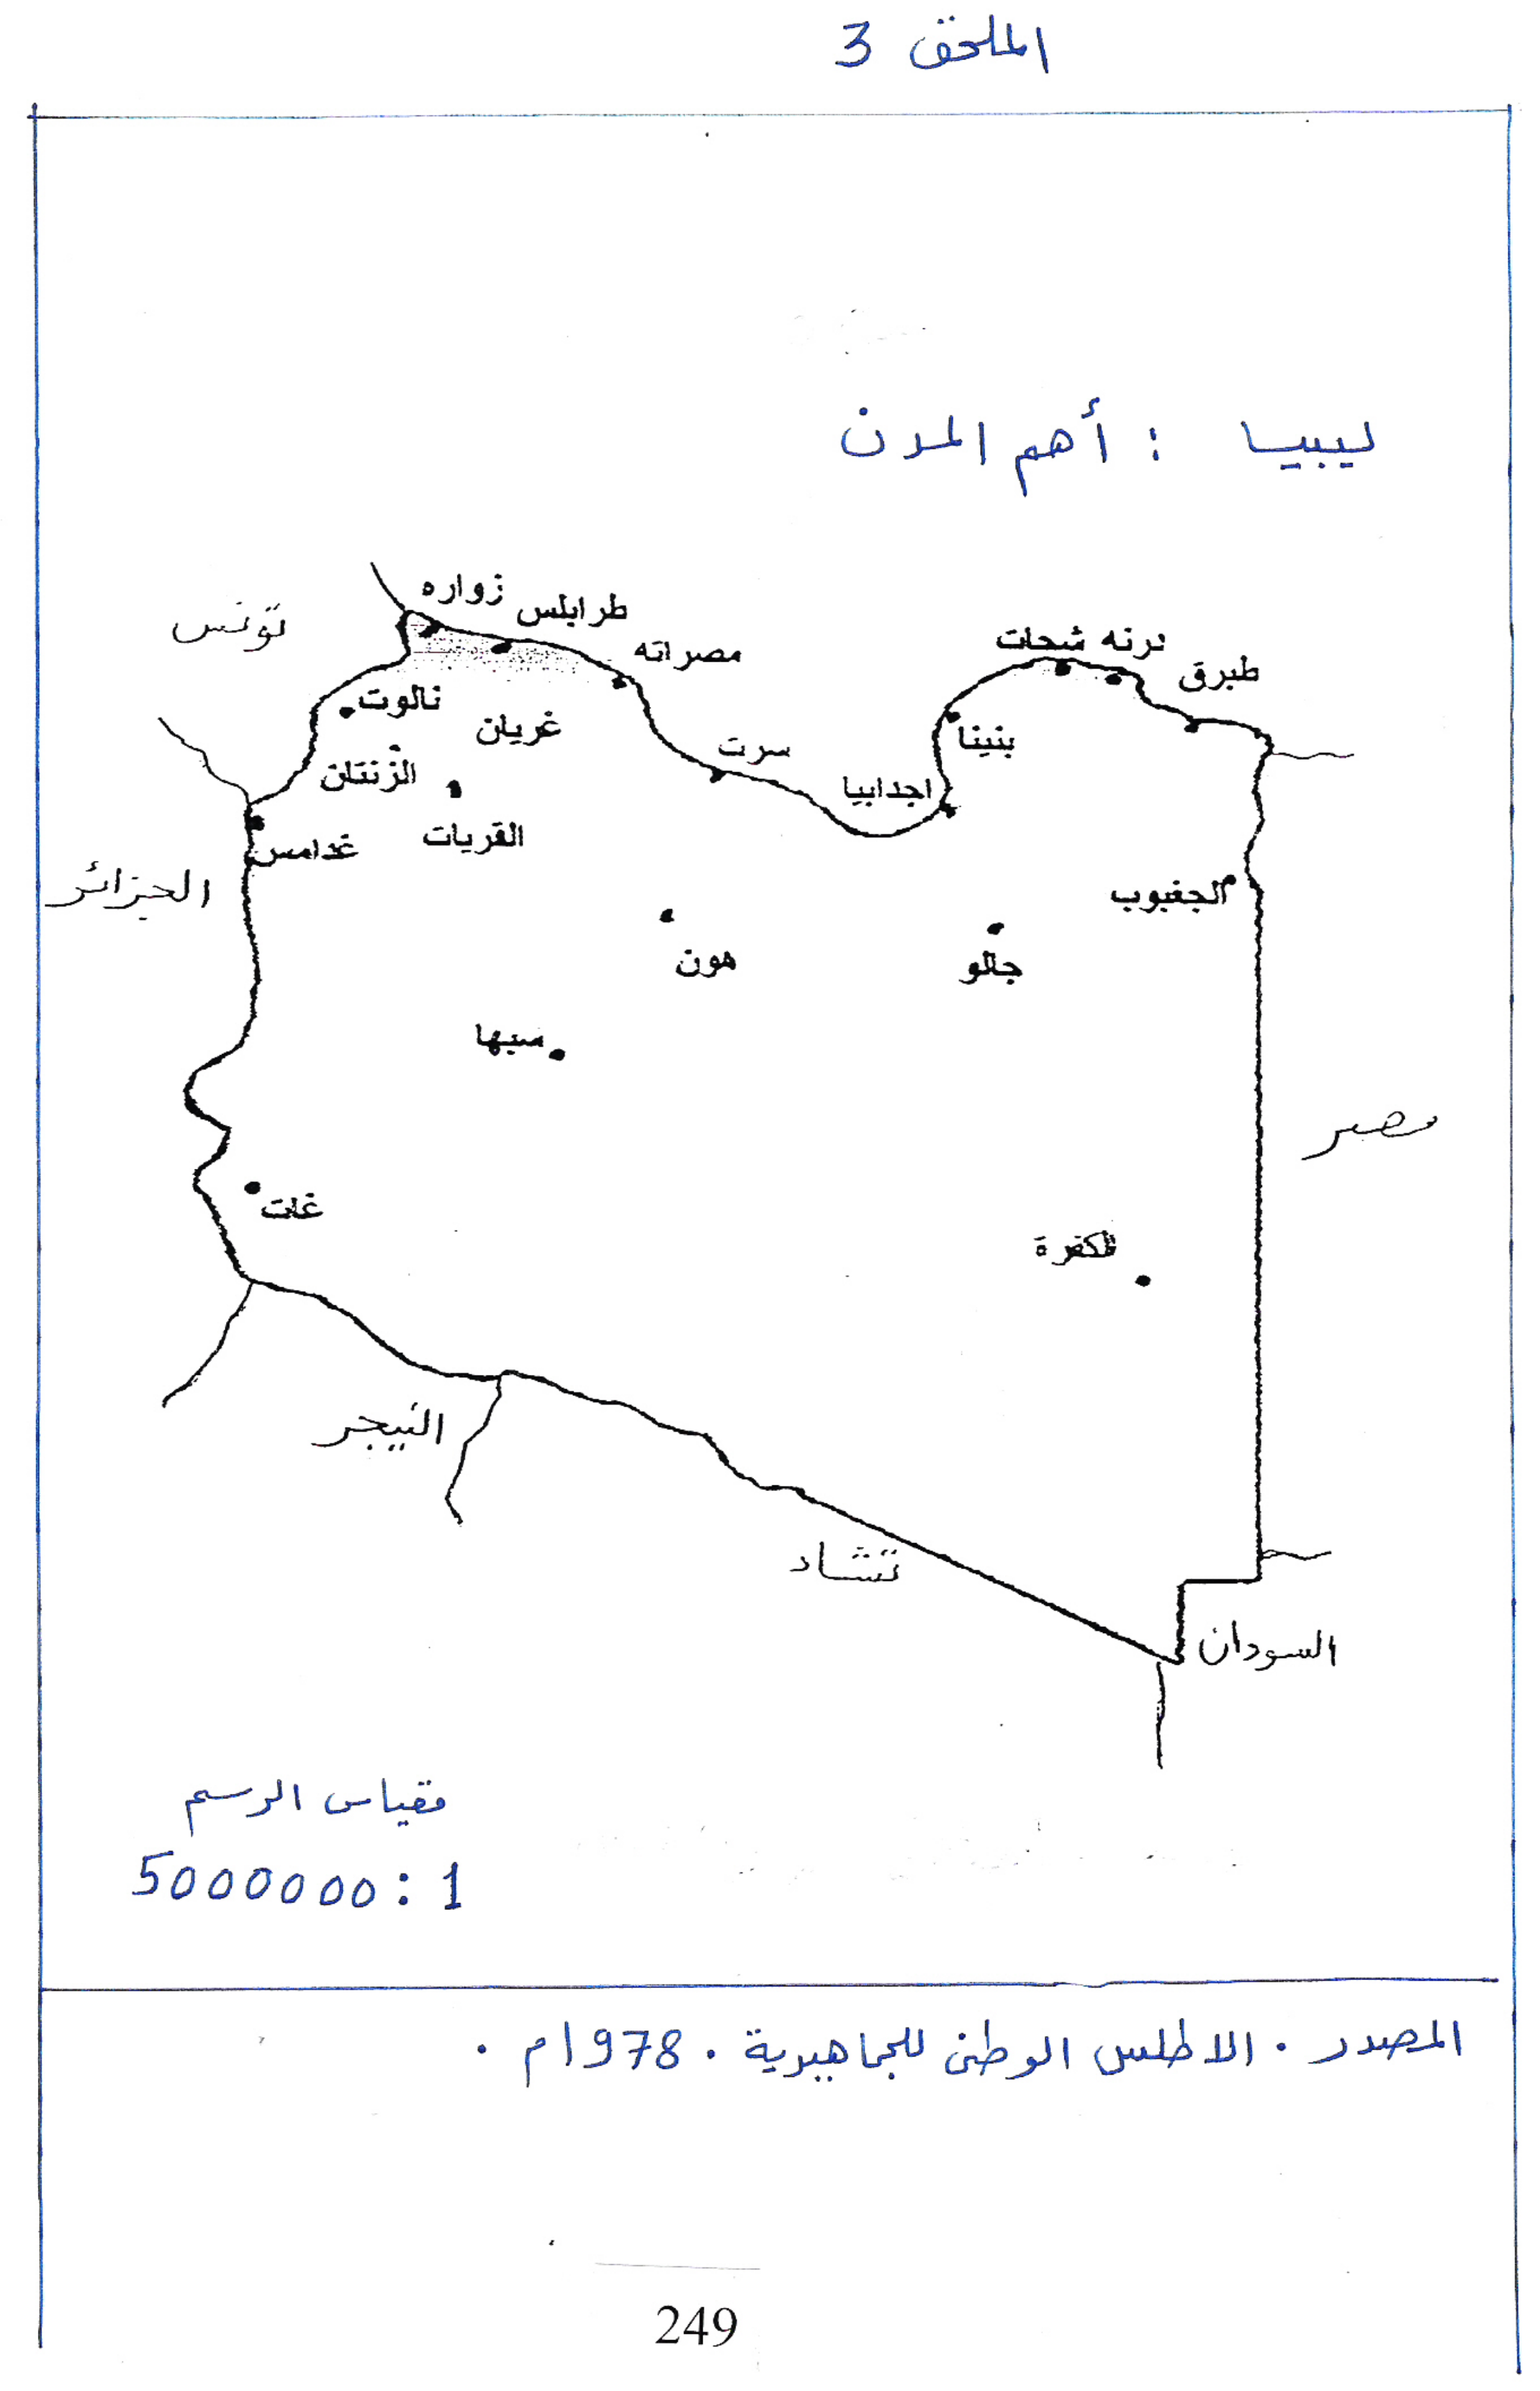 الملحق 3
ليبيا : أهم المدن
زواره
طرابلس
تونس
مصراته
شحات
درنه
طبرق
نالوت
غريان
بنينا
سرت
الزنتان
اجدابيا
القريات
غدامس
الجزائر
الجغبوب
هون
جالو
سبها
مصر
غات
الكفرة
النيجر
تشاد
السودان
مقياس الرسم
1 : 5000000
المصدر . الاطلس الوطني للجماهيرية . 1978م .
249